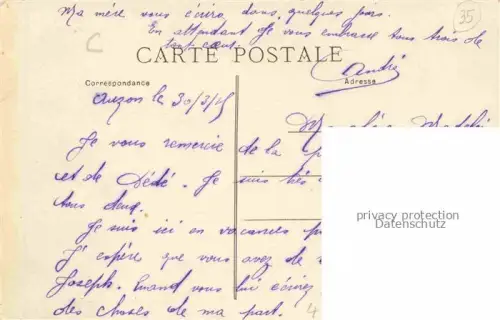 Ma mère vous écrira dans quelques jours.
En attendant je vous embrasse tous trois de
tout cœur.
André
35
C
CARTE POSTALE
Correspondance
Adresse
Auzon le 30/3/15
Je vous remercie de la
et de Dédé. Je suis très
tous deux.
Je suis ici en vacances
J'espère que vous avez de
Joseph. Quand vous lui écrirez
des choses de ma part.
privacy protection
Datenschutz